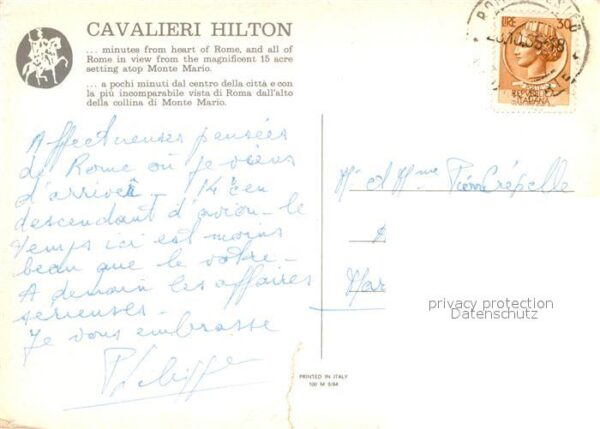 CAVALIERI HILTON
... minutes from heart of Rome, and all of
Rome in view from the magnificent 15 acre
setting atop Monte Mario.
... a pochi minuti dal centro della città e con
la più incomparabile vista di Roma dall'alto
della collina di Monte Mario.
Affectueuses pensées
de Rome où je viens
d'arriver - 14° en
descendant d'avion - le
temps ici est moins
beau que le votre -
A demain les affaires
serieuses -
Je vous embrasse
Philippe
LIRE 30
REP. ITALIANA
Mr et Mme Pierre Crépelle
Mar
privacy protection
Datenschutz
PRINTED IN ITALY
100 M 5/64